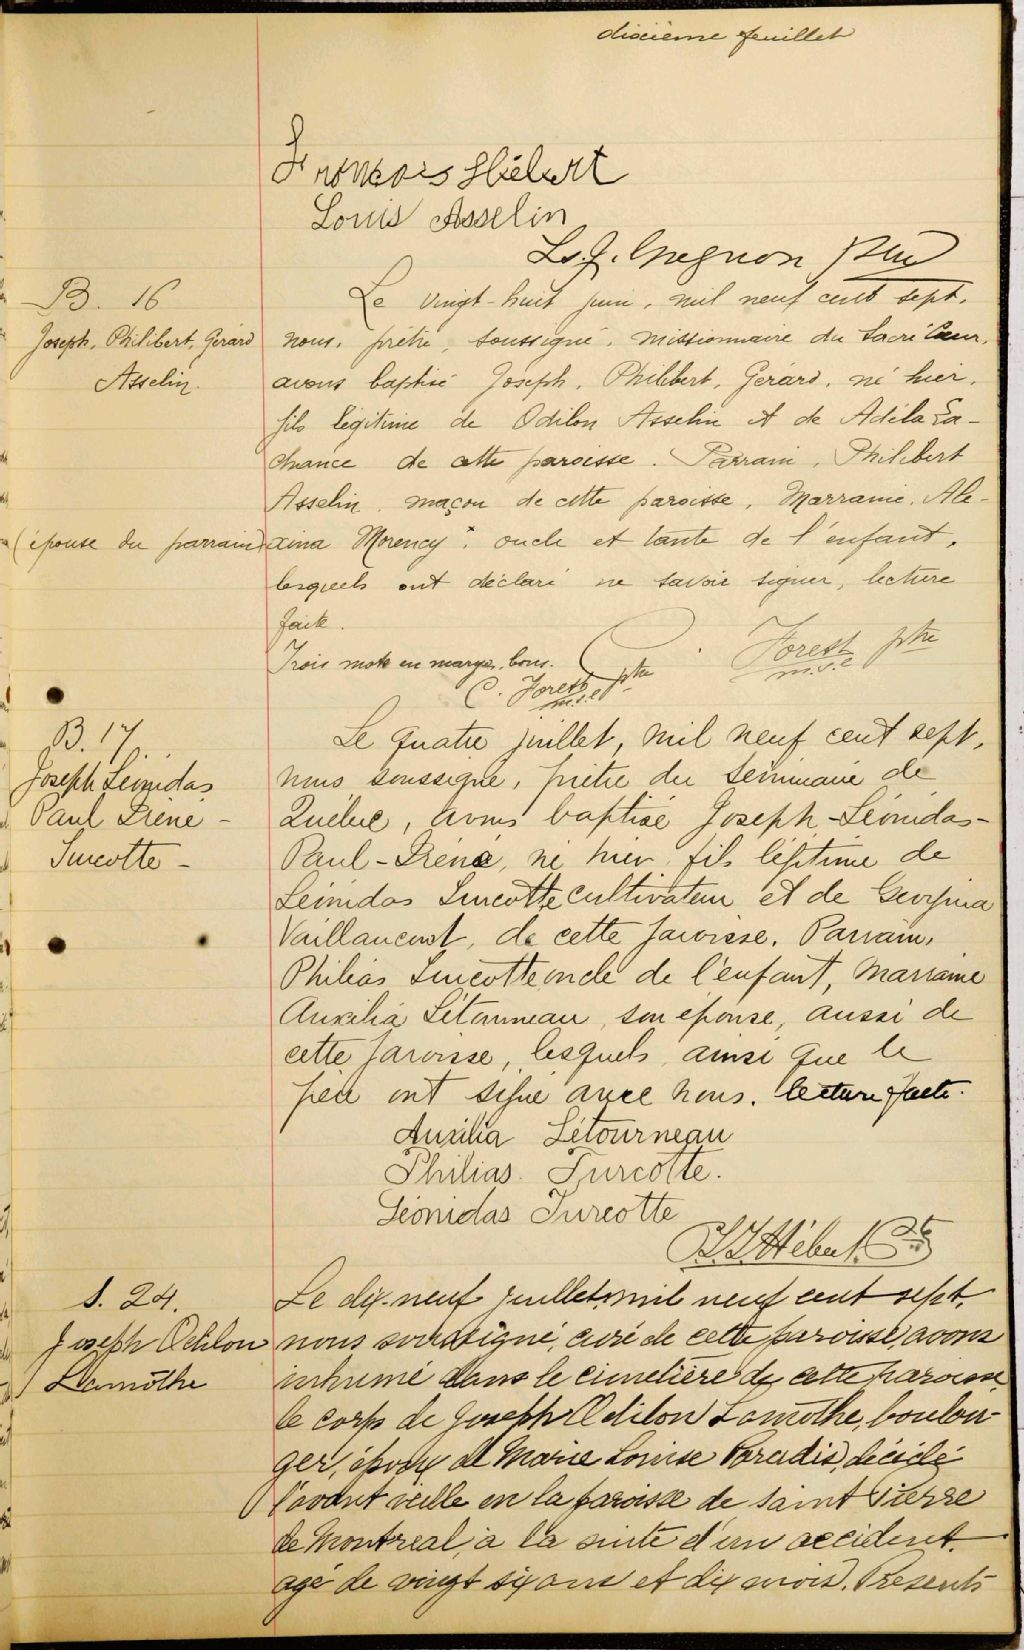 dixième feuillet
François Hébert
Louis Asselin
B. 16
Joseph, Philibert, Gérard
Asselin.
Le vingt-huit juin, mil neuf cent sept,
nous, prêtre, soussigné, missionnaire du Sacré Coeur,
avons baptisé Joseph, Philibert, Gérard, né hier,
fils légitime de Odilon Asselin et de Adéla La-
chance de cette paroisse. Parrain, Philibert
Asselin, maçon de cette paroisse, Marraine, Ale-
(épouse du parrain)
xina Morency, oncle et tante de l'enfant,
lesquels ont déclaré ne savoir signer, lecture
faite.
Trois mots en marge, bons.
Forest ptre
m.s.c
C. Forest ptre
m.s.c
B. 17
Joseph Léonidas
Paul Irénée -
Turcotte -
Le quatre juillet, mil neuf cent sept,
nous soussigné, prêtre du Séminaire de
Québec, avons baptisé Joseph-Léonidas-
Paul-Iréné, né hier, fils légitime de
Léonidas Turcotte cultivateur et de Georgina
Vaillancourt, de cette paroisse. Parrain,
Philias Turcotte oncle de l'enfant, marraine
Auxilia Létourneau, son épouse, aussi de
cette paroisse, lesquels ainsi que le
père ont signé avec nous. lecture faite.
Auxilia Létourneau
Philias Turcotte.
Léonidas Turcotte
Hébert
S. 24.
Joseph Odilon
Lamothe
Le dix-neuf juillet, mil neuf cent sept,
nous soussigné, curé de cette paroisse, avons
inhumé dans le cimetière de cette paroisse
le corps de Joseph Odilon Lamothe, boulan-
ger, époux de Marie Louise Paradis, décédé
l'avant veille en la paroisse de Saint Pierre
de Montreal, à la suite d'un accident,
agé de vingt six ans et dix mois. Présents